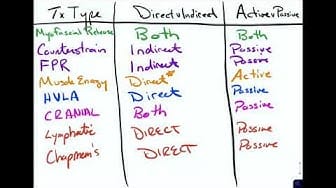 Tx Type Direct v Indirect Active v Passive
Myofascial Release Both Both
Counterstrain Indirect Passive
FPR Indirect Passive
Muscle Energy Direct* Active
HVLA Direct Passive
CRANIAL Both Passive
Lymphatic DIRECT Passive
Chapman's DIRECT Passive